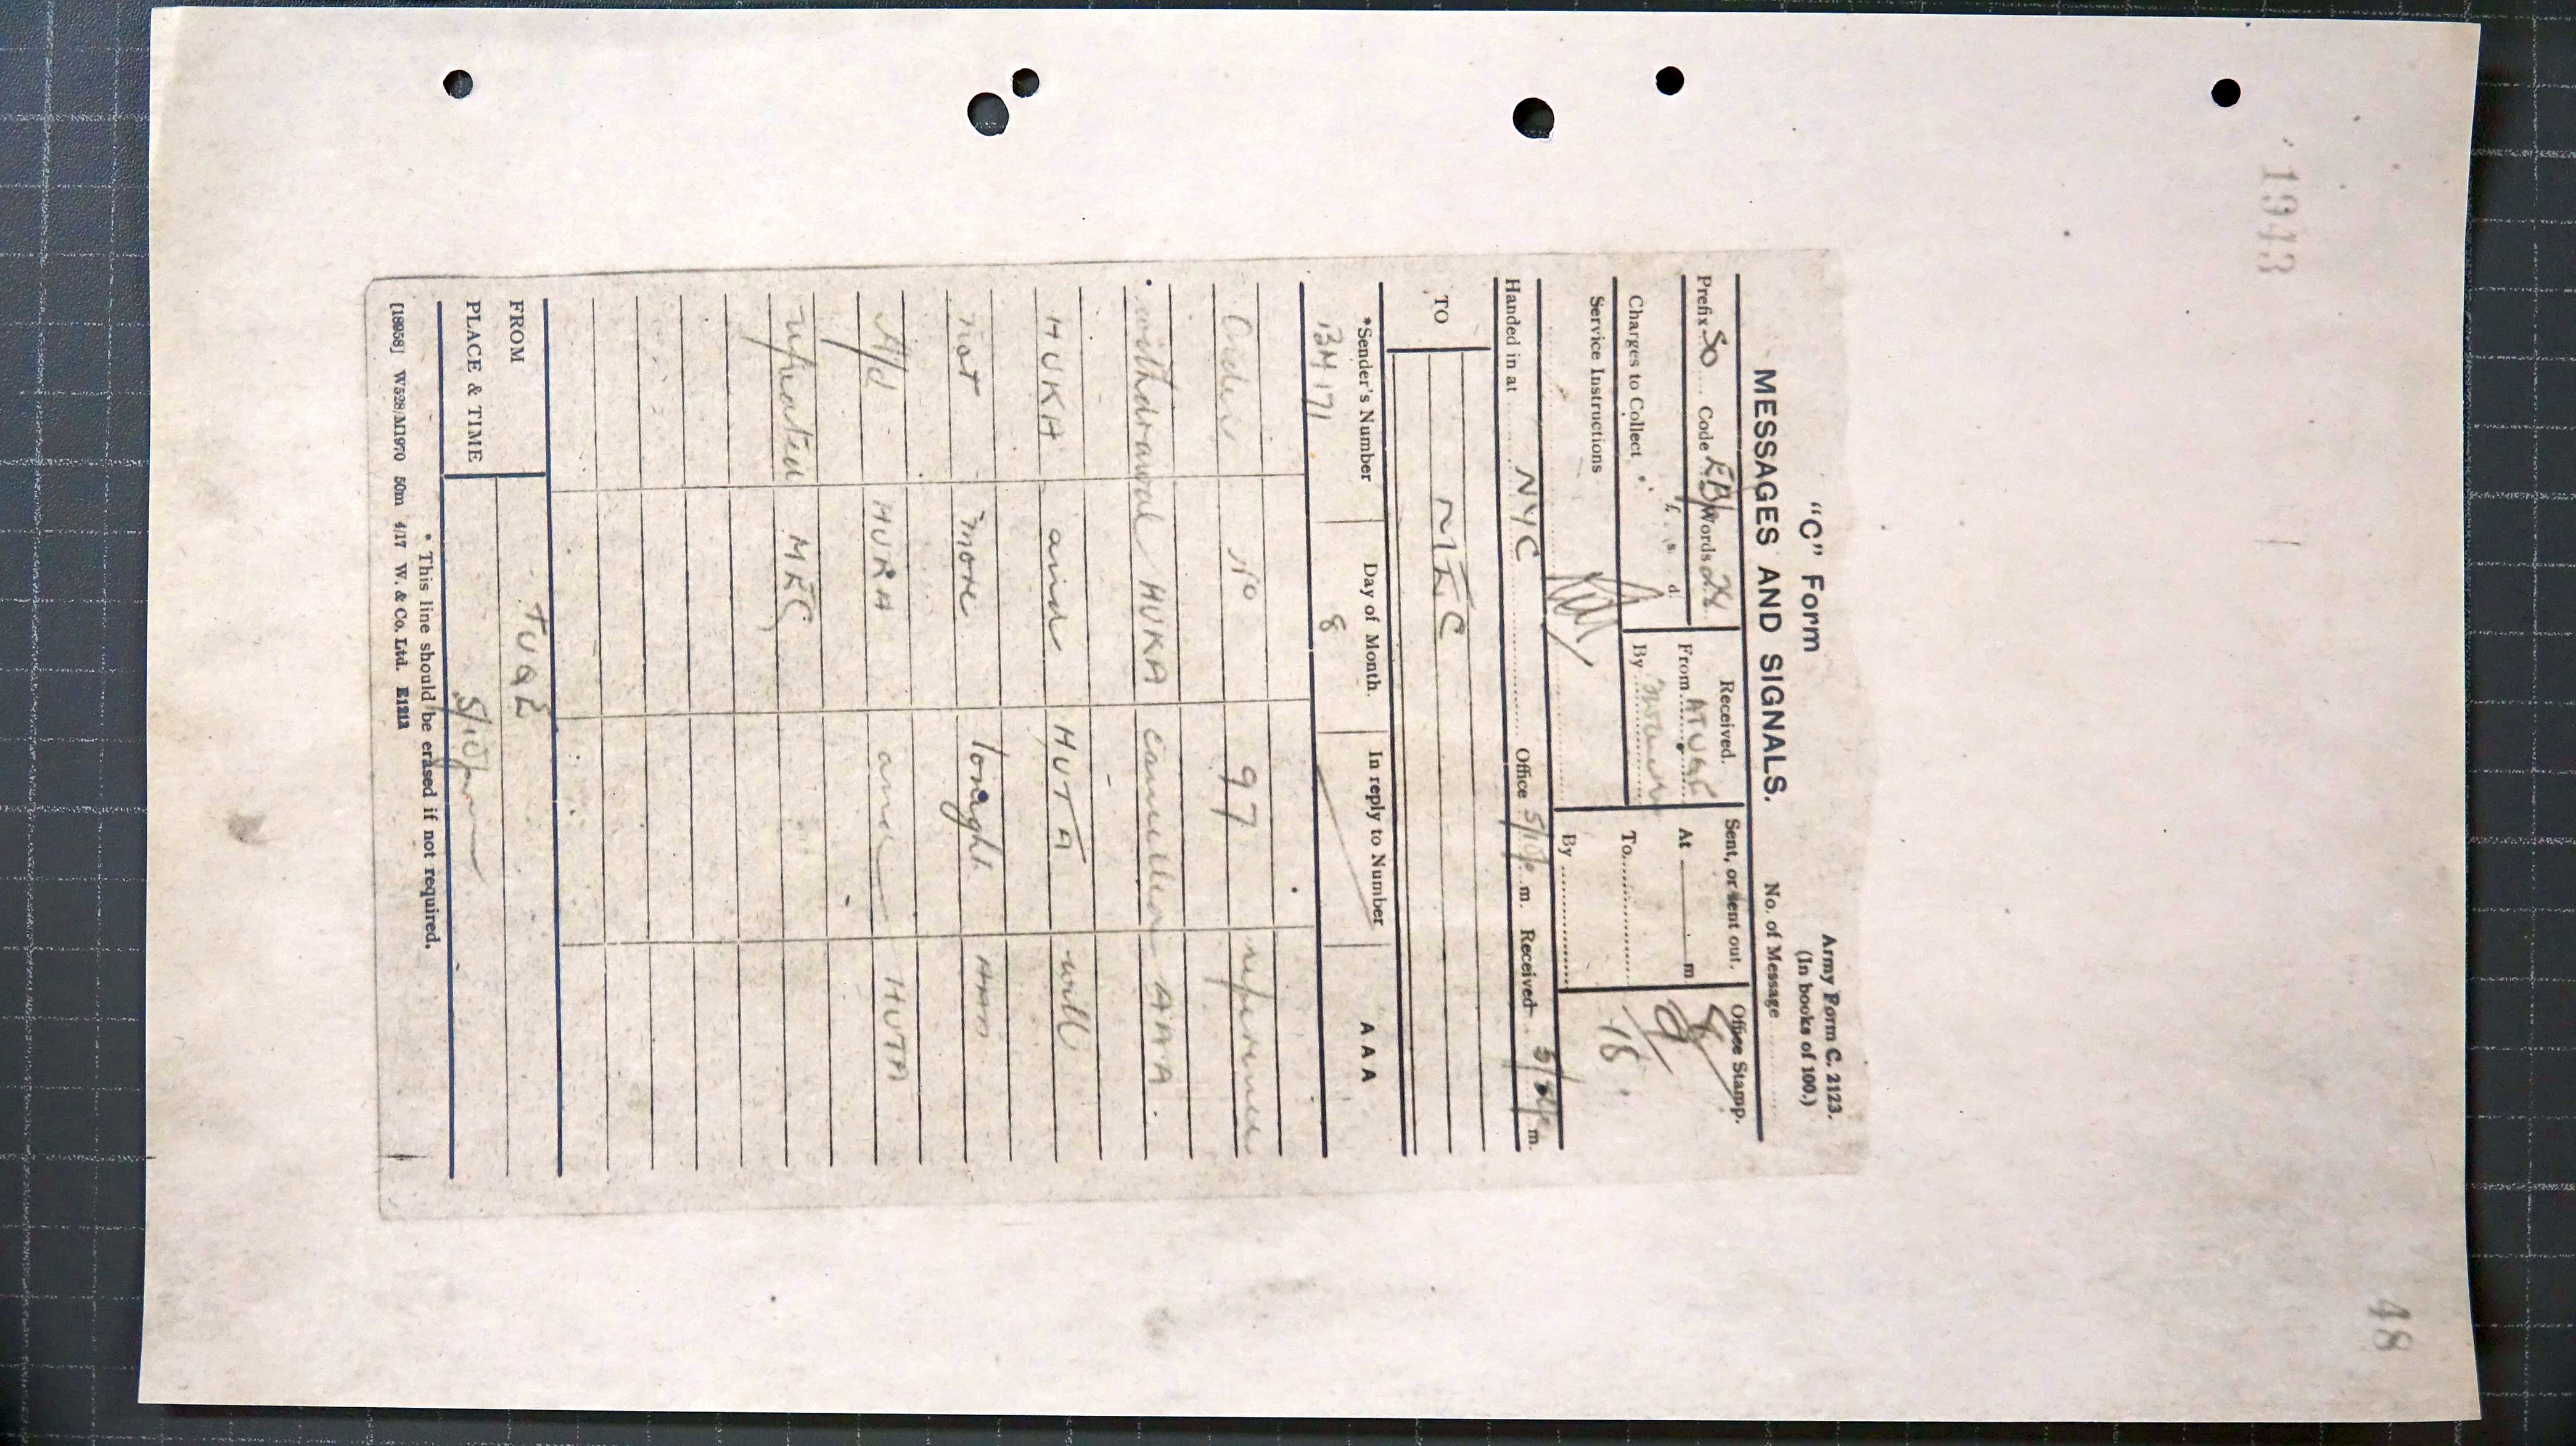 1943
48
"C" Form
Army Form C. 2123.
(In books of 100.)
MESSAGES AND SIGNALS.
No. of Message
Prefix SO Code EB Words 24
Received.
Sent, or sent out.
Office Stamp.
From
At m
Charges to Collect
£ s. d.
By
To
18
Service Instructions
By
Handed in at NYC Office m. Received m.
TO MEC
*Sender's Number
Day of Month.
In reply to Number
AAA
BM 171
8
Order No 97 reference
withdrawal HUKA cancelled AAA
HUKA and HUTA will
not move tonight AAA
A/d HUKA and HUTA
repeated MEC
FROM
TUQE
PLACE & TIME
5/10pm
* This line should be erased if not required.
[18958] W528/M1970 50m 4/17 W. & Co. Ltd. E1213